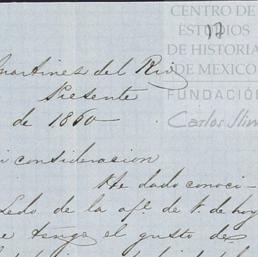 CENTRO DE
ESTUDIOS
DE HISTORIA
DE MEXICO
FUNDACIÓN
Carlos Slim
17
Martines del Rio
Presente
de 1860
consideracion
He dado conoci-
Ledo de la af.ª de V. de hoy
tenga el gusto de